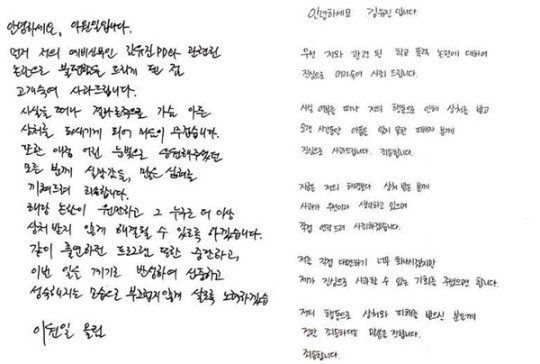 안녕하세요, 이원일입니다.
먼저 저의 예비신부인 김유진PD와 관련된
논란으로 불편함을 드리게 된 점
고개숙여 사과드립니다.
사실을 떠나 결과론적으로 가슴 아픈
상처를 되새기게 되어 마음이 무겁습니다.
또한 애정 어린 눈빛으로 응원해주셨던
모든 분께 실망감을, 많은 심려를
끼쳐드려 죄송합니다.
해당 논란이 원만하고 그 누구도 더 이상
상처 받지 않게 해결될 수 있도록 하겠습니다.
같이 출연하던 프로그램 또한 중단하고,
이번 일을 계기로 반성하여 신중하고
성숙해지는 모습으로 부끄럽지않게 살도록 노력하겠습
이원일 올림
안녕하세요 김유진입니다
우선 저와 관련 된 학교 폭력 논란에 대하여
진심으로 머리숙여 사죄 드립니다.
사실 여부를 떠나 저의 행동으로 인해 상처를 받고
오랜 시간동안 아픔을 잊지 못한 피해자 분께
진심으로 사과드립니다. 죄송합니다.
지금은 저의 해명보다 상처 받은 분께
사과가 우선이라 생각하고 있으며
직접 연락드려 사죄하겠습니다.
저를 직접 대면하기 너무 화나시겠지만
제가 진심으로 사과할 수 있는 기회를 주셨으면 합니다.
저의 행동으로 상처와 피해를 받으신 분들께
정말 죄송하다는 말씀을 전합니다.
죄송합니다.